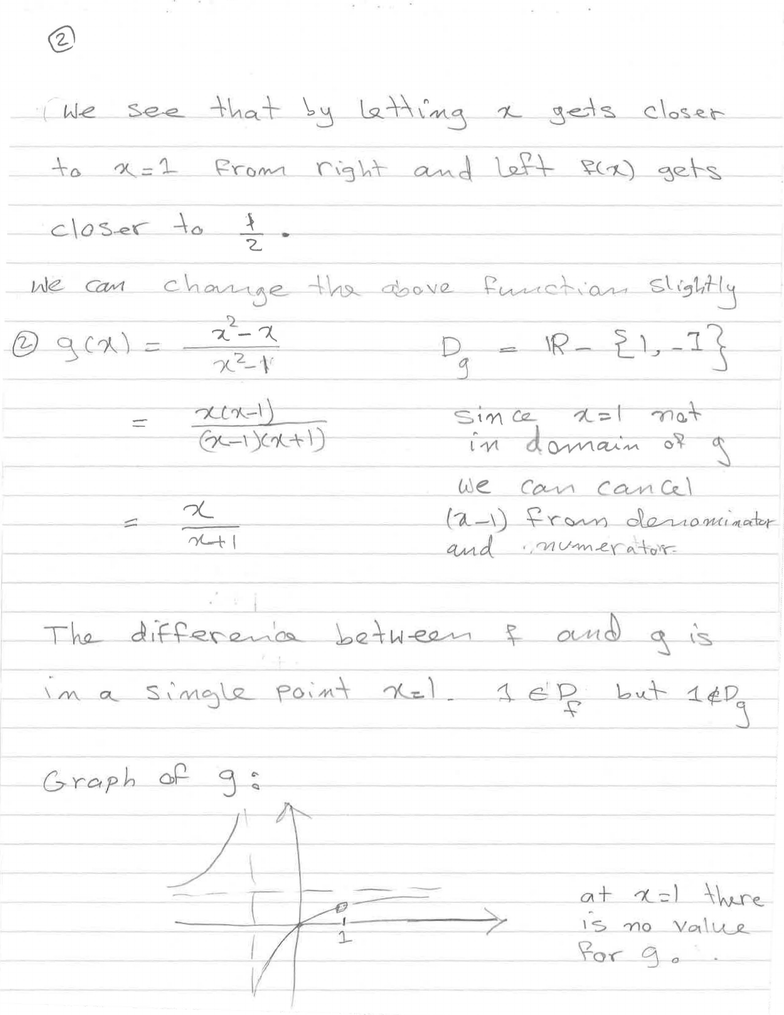 ②
We see that by letting x gets closer
to x=1 from right and left f(x) gets
closer to 1/2.
We can change the above function slightly
② g(x) = (x²-x)/(x²-1)    D_g = ℝ - {1, -1}
= x(x-1)/((x-1)(x+1))    since x=1 not
in domain of g
we can cancel
= x/(x+1)    (x-1) from denominator
and numerator.
The difference between f and g is
in a single point x=1. 1 ∈ D_f but 1 ∉ D_g
Graph of g:
1
at x=1 there
is no value
for g.